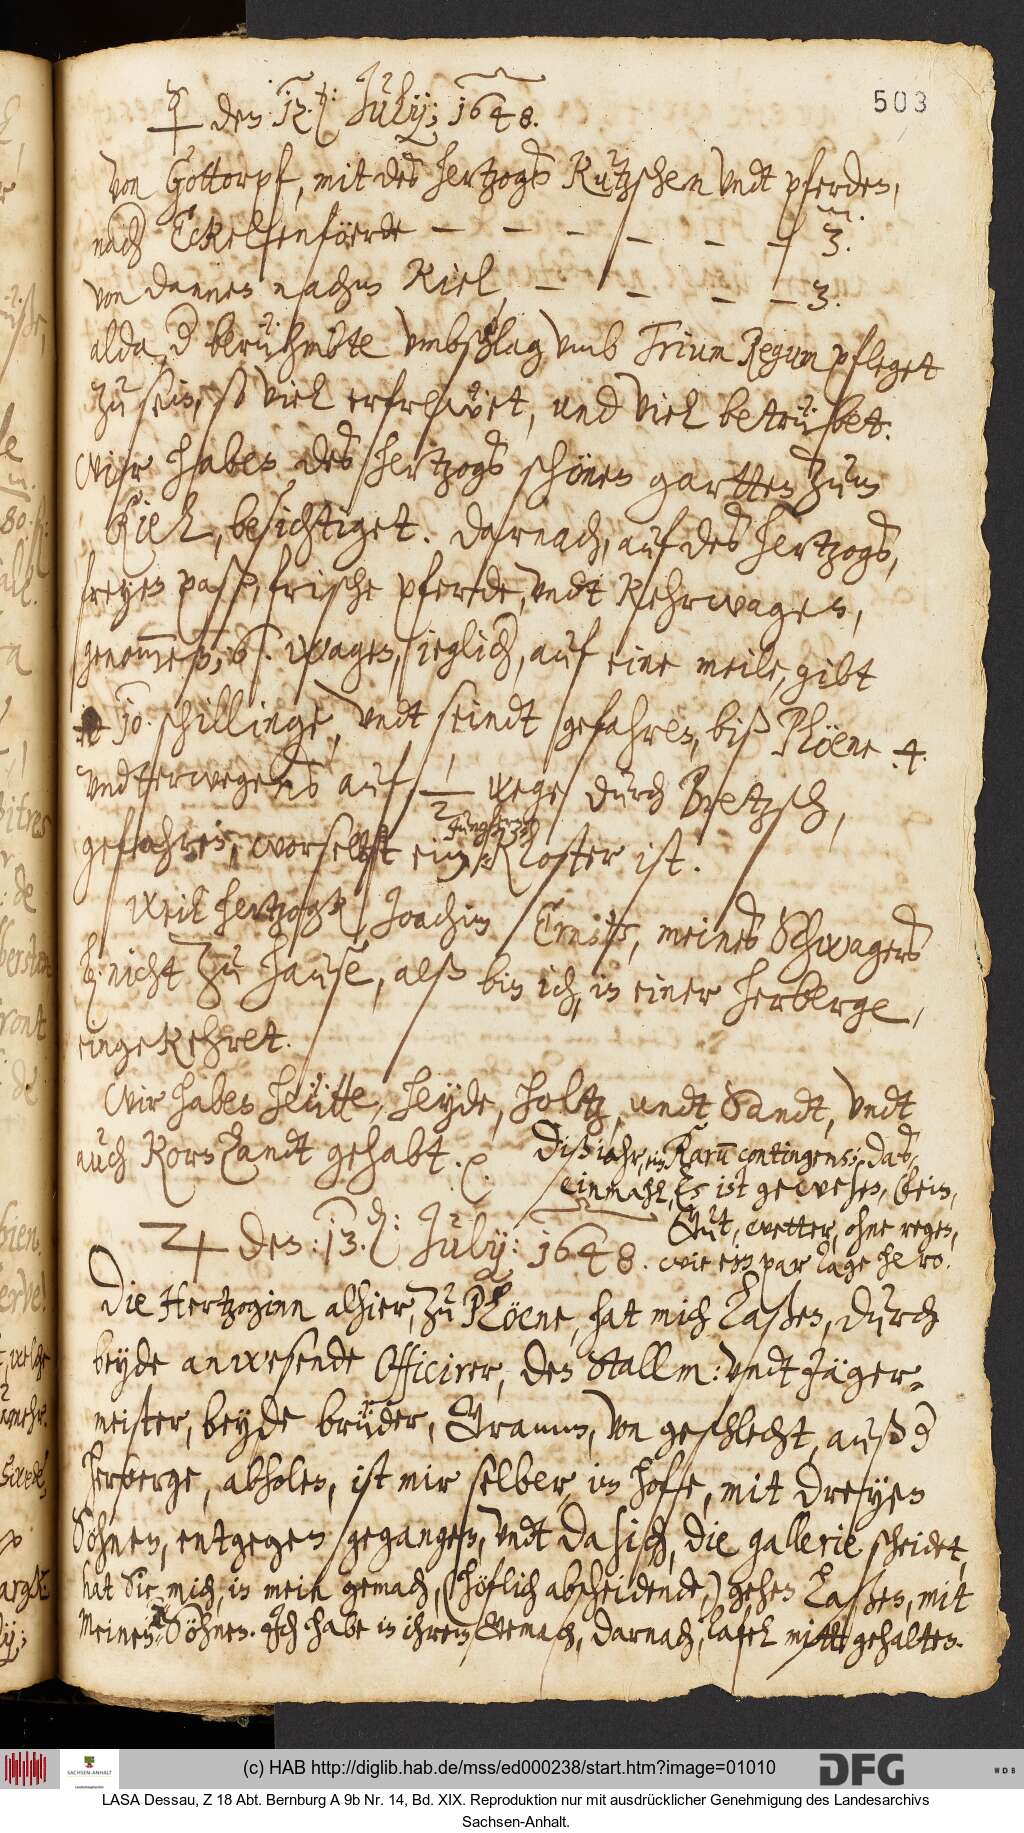 503
☿ den 12. July: 1648.
von Gottorpf, mit des hertzogs Kutzschen vndt pferden,
nach Eckelßenföerde — — — — — — 3.
von dannen nacher Kiel, — — — — 3.
alda d berühmbte vmbschlag vmb Trium Regum pfleget
zu sein, so viel erfrewet, und viel betrübet.
Wir haben des hertzogs schönen gartten zum
Kiel, besichtiget. Darnach, auf des hertzogs,
freyen paß, frische pferde, vndt Rehrwagen,
genommen, 6. wagen, ieglich, auf eine meile, gibt
10. schillinge, vndt seindt gefahren, biß Plöene 4.
vndterwegens auf 1/2 wege durch Pretzsch,
gefahren, worselbst ein Jungfern Kloster ist.
Weil hertzogk Joachim Ernsts, meines Schwagers
L: nicht zu hause, alß bin ich, in einer herberge,
eingekehret.
Wir haben heütte, heyde, holtz, undt Sandt, vndt
auch Kornlandt gehabt.
Diß iahr, ein Raru contingens, daß
einmahl, Es ist gewesen, kein,
Gut, wetter, ohne regen,
wie ein par tage hero.
♃ den: 13. July: 1648.
Die Hertzoginn alhier, zu Plöene, hat mich laßen, durch
beyde anwesende Officirer, den Stallm: vndt Jäger-
meister, beyde brüder, von geschlecht, auß d
herberge, abholen, ist mir selber, im hoffe, mit dreyen
Söhnen, entgegen gegangen, vndt da sich, die gallerie scheidet,
hat Sie, mich, in mein gemach, (höflich abscheidende,) gehen laßen, mit
Meinen Söhnen. Ich habe in ihrem Gemach, darnach, tafel mitt gehalten.
(c) HAB http://diglib.hab.de/mss/ed000238/start.htm?image=01010
DFG
WDB
SACHSEN-ANHALT
LASA Dessau, Z 18 Abt. Bernburg A 9b Nr. 14, Bd. XIX. Reproduktion nur mit ausdrücklicher Genehmigung des Landesarchivs
Sachsen-Anhalt.